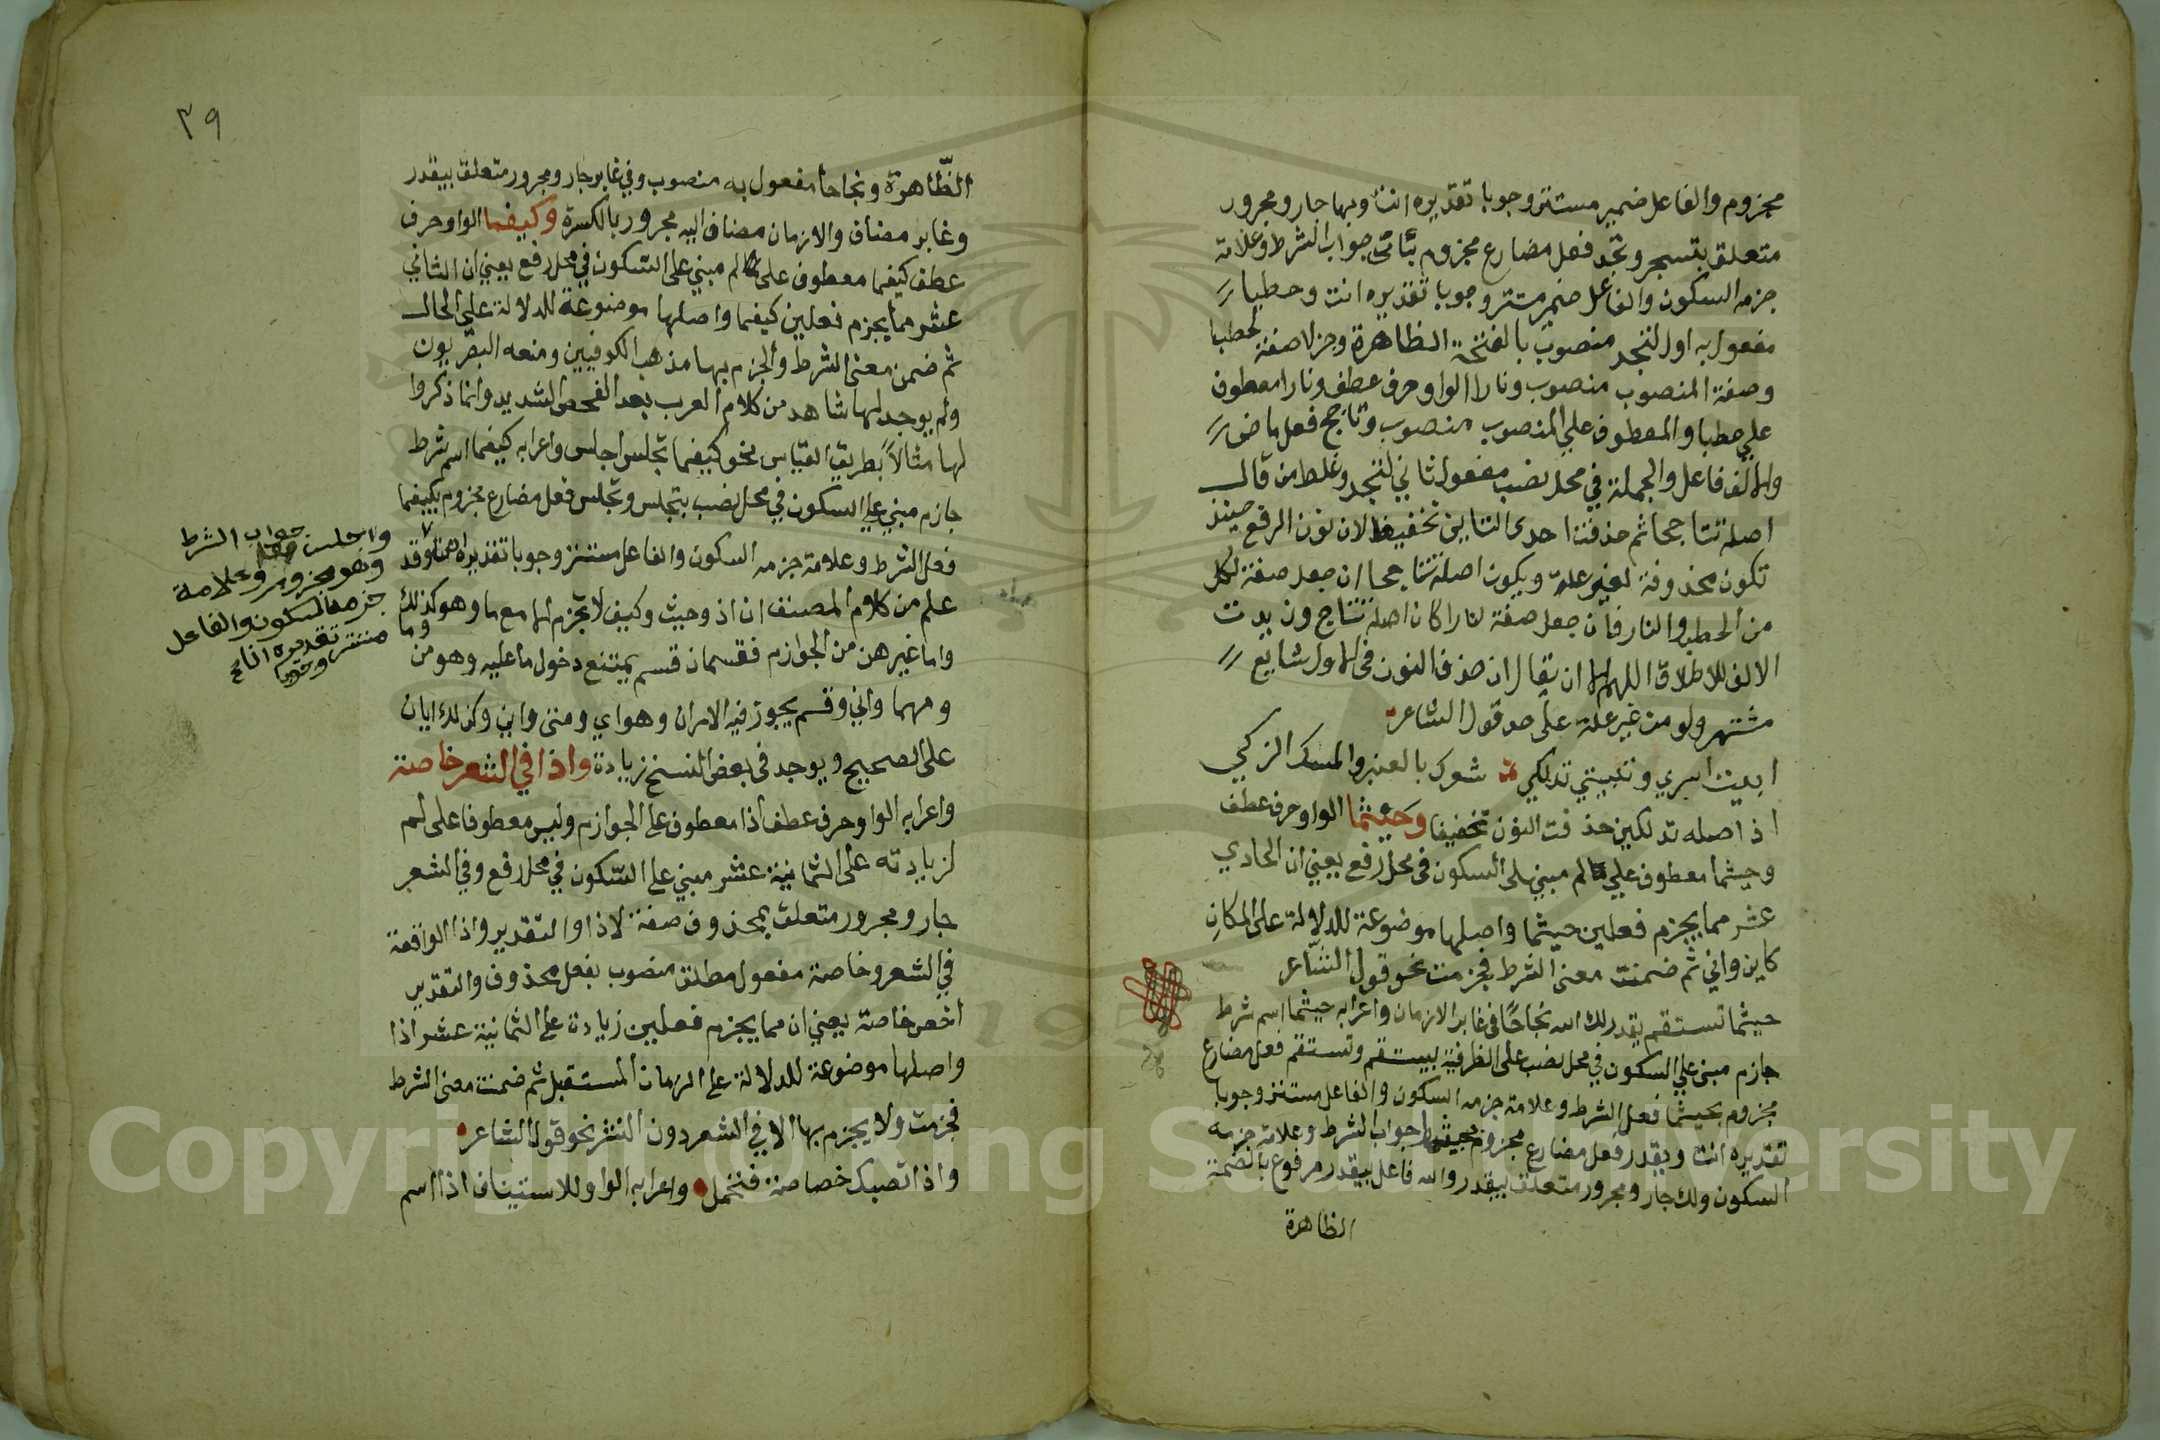 مجزوم والفاعل ضمير مستتر وجوبا تقديره انت وبها جار ومجرور
متعلق بتستجر وتجد فعل مضارع مجزوم بأنى جواب الشرط وعلامة
جزمه السكون والفاعل ضمير مستتر وجوبا تقديره انت وحطبا
مفعول به اول لتجد منصوب بالفتحة الظاهرة وجزلا صفة لحطبا
وصفة المنصوب منصوب ونارا الواو حرف عطف ونارا معطوف
علي حطبا والمعطوف علي المنصوب منصوب وتاجج فعل ماض
والالف فاعل والجملة في محل نصب مفعول ثاني لتجد وغلط من قال
اصله تتاججا ثم حذفت احدى التاين تخفيفا لان نون الرفع حينئذ
تكون محذوفة لغير علة ويكون اصله تتاججا ان جعل صفة لكل
من الحطب والنار فان جعل صفة لنارا كان اصله تتاجج وزيدت
الالف للاطلاق اللهم الا ان يقال ان حذف النون في الاول شايع
مشتهر ولو من غير علة على حد قول الشاعر
ابيت اسري وتبيتي تدلكي شعرك بالعنبر والمسك الزكي
اذ اصله تدلكين حذفت النون تخفيفا وحيثما الواو حرف عطف
وحيثما معطوف علي لم مبني على السكون في محل رفع يعني ان الحادي
عشر مما يجزم فعلين حيثما واصلها موضوعة للدلالة على المكان
كاين واني ثم ضمنت معنى الشرط فجزمت نحو قول الشاعر
حيثما تستقم يقدر لك الله نجاحا في غابر الازمان واعرابه حيثما اسم شرط
جازم مبني علي السكون في محل نصب على الظرفية بيستقم وتستقم فعل مضارع
مجزوم بحيثما فعل الشرط وعلامة جزمه السكون والفاعل مستتر وجوبا
تقديره انت ويقدر فعل مضارع مجزوم بحيثما جواب الشرط وعلامة جزمه
السكون ولك جار ومجرور متعلق بيقدر والله فاعل بيقدر مرفوع بالضمة
الظاهرة
٣٩
الظاهرة ونجاحا مفعول به منصوب وفي غابر جار ومجرور متعلق بيقدر
وغابر مضاف والازمان مضاف اليه مجرور بالكسرة وكيفما الواو حرف
عطف كيفما معطوف على لم مبني على السكون في محل رفع يعني ان الثاني
عشر مما يجزم فعلين كيفما واصلها موضوعة للدلالة على الحال
ثم ضمن معنى الشرط والجزم بها مذهب الكوفيين ومنعه البصريون
ولم يوجد لها شاهد من كلام العرب بعد الفحص الشديد وانما ذكروا
لها مثالاً بطريق القياس نحو كيفما تجلس اجلس واعرابه كيفما اسم شرط
جازم مبني علي السكون في محل نصب بتجلس وتجلس فعل مضارع مجزوم بكيفما
فعل الشرط وعلامة جزمه السكون والفاعل مستتر وجوبا تقديره انت وقد
علم من كلام المصنف ان اذ وحيث وكيف لا تجزم الا مع ما وهو كذلك
واما غيرهن من الجوازم فقسمان قسم يمتنع دخول ما عليه وهو من وما
ومهما واني وقسم يجوز فيه الامران وهو اي ومتى واين وكذلك ايان
على الصحيح ويوجد في بعض النسخ زيادة واذا في الشعر خاصة
واعرابه الواو حرف عطف اذا معطوف على الجوازم وليس معطوفا على لم
لزيادته على الثمانية عشر مبني على السكون في محل رفع وفي الشعر
جار ومجرور متعلق بمحذوف صفة لاذا والتقدير واذا الواقعة
في الشعر وخاصة مفعول مطلق منصوب بفعل محذوف والتقدير
اخص خاصة يعني ان مما يجزم فعلين زيادة على الثمانية عشر اذا
واصلها موضوعة للدلالة على الزمان المستقبل ثم ضمنت معنى الشرط
فجزمت ولا يجزم بها الا في الشعر دون النثر نحو قول الشاعر
واذا تصبك خصاصة فتحمل واعرابه الواو للاستيناف اذا اسم
واجلس جواب الشرط
وهو مجزوم وعلامة
جزمه السكون والفاعل
مستتر تقديره انا
وجوبا
Copyright © King Saud University